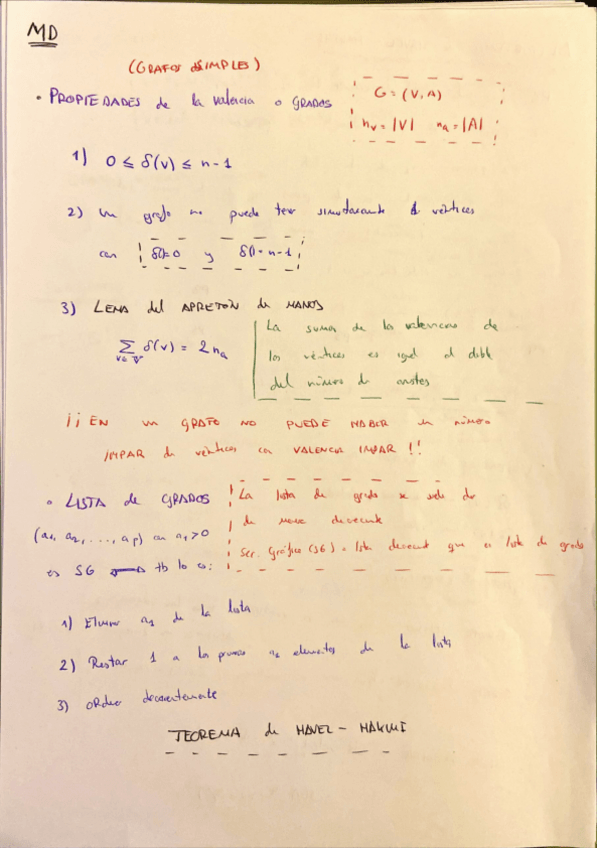 MD
(GRAFOS SIMPLES)
• PROPIEDADES de la valencia o GRADOS
G = (V, A)
nv = |V| na = |A|
1) 0 ≤ δ(v) ≤ n-1
2) Un grafo no puede tener vértices
con δ()=0 y δ()=n-1
3) LEMA del APRETÓN de MANOS
∑ v∈V δ(v) = 2na
La suma de las valencias de
los vértices es igual al doble
del número de aristas
¡¡EN un GRAFO NO PUEDE HABER un número
IMPAR de vértices con VALENCIA IMPAR!!
• LISTA de GRADOS
(a1, a2, ..., ap) con a1>0
es SG ⟷ tb lo es:
La lista de grados se suele dar
de
Ser. Gráfica (SG) = lista que es lista de grados
1) Elimino a1 de la lista
2) Restar 1 a los primeros a1 elementos de la lista
3) Ordeno decrecientemente
TEOREMA de HAVEL-HAKIMI